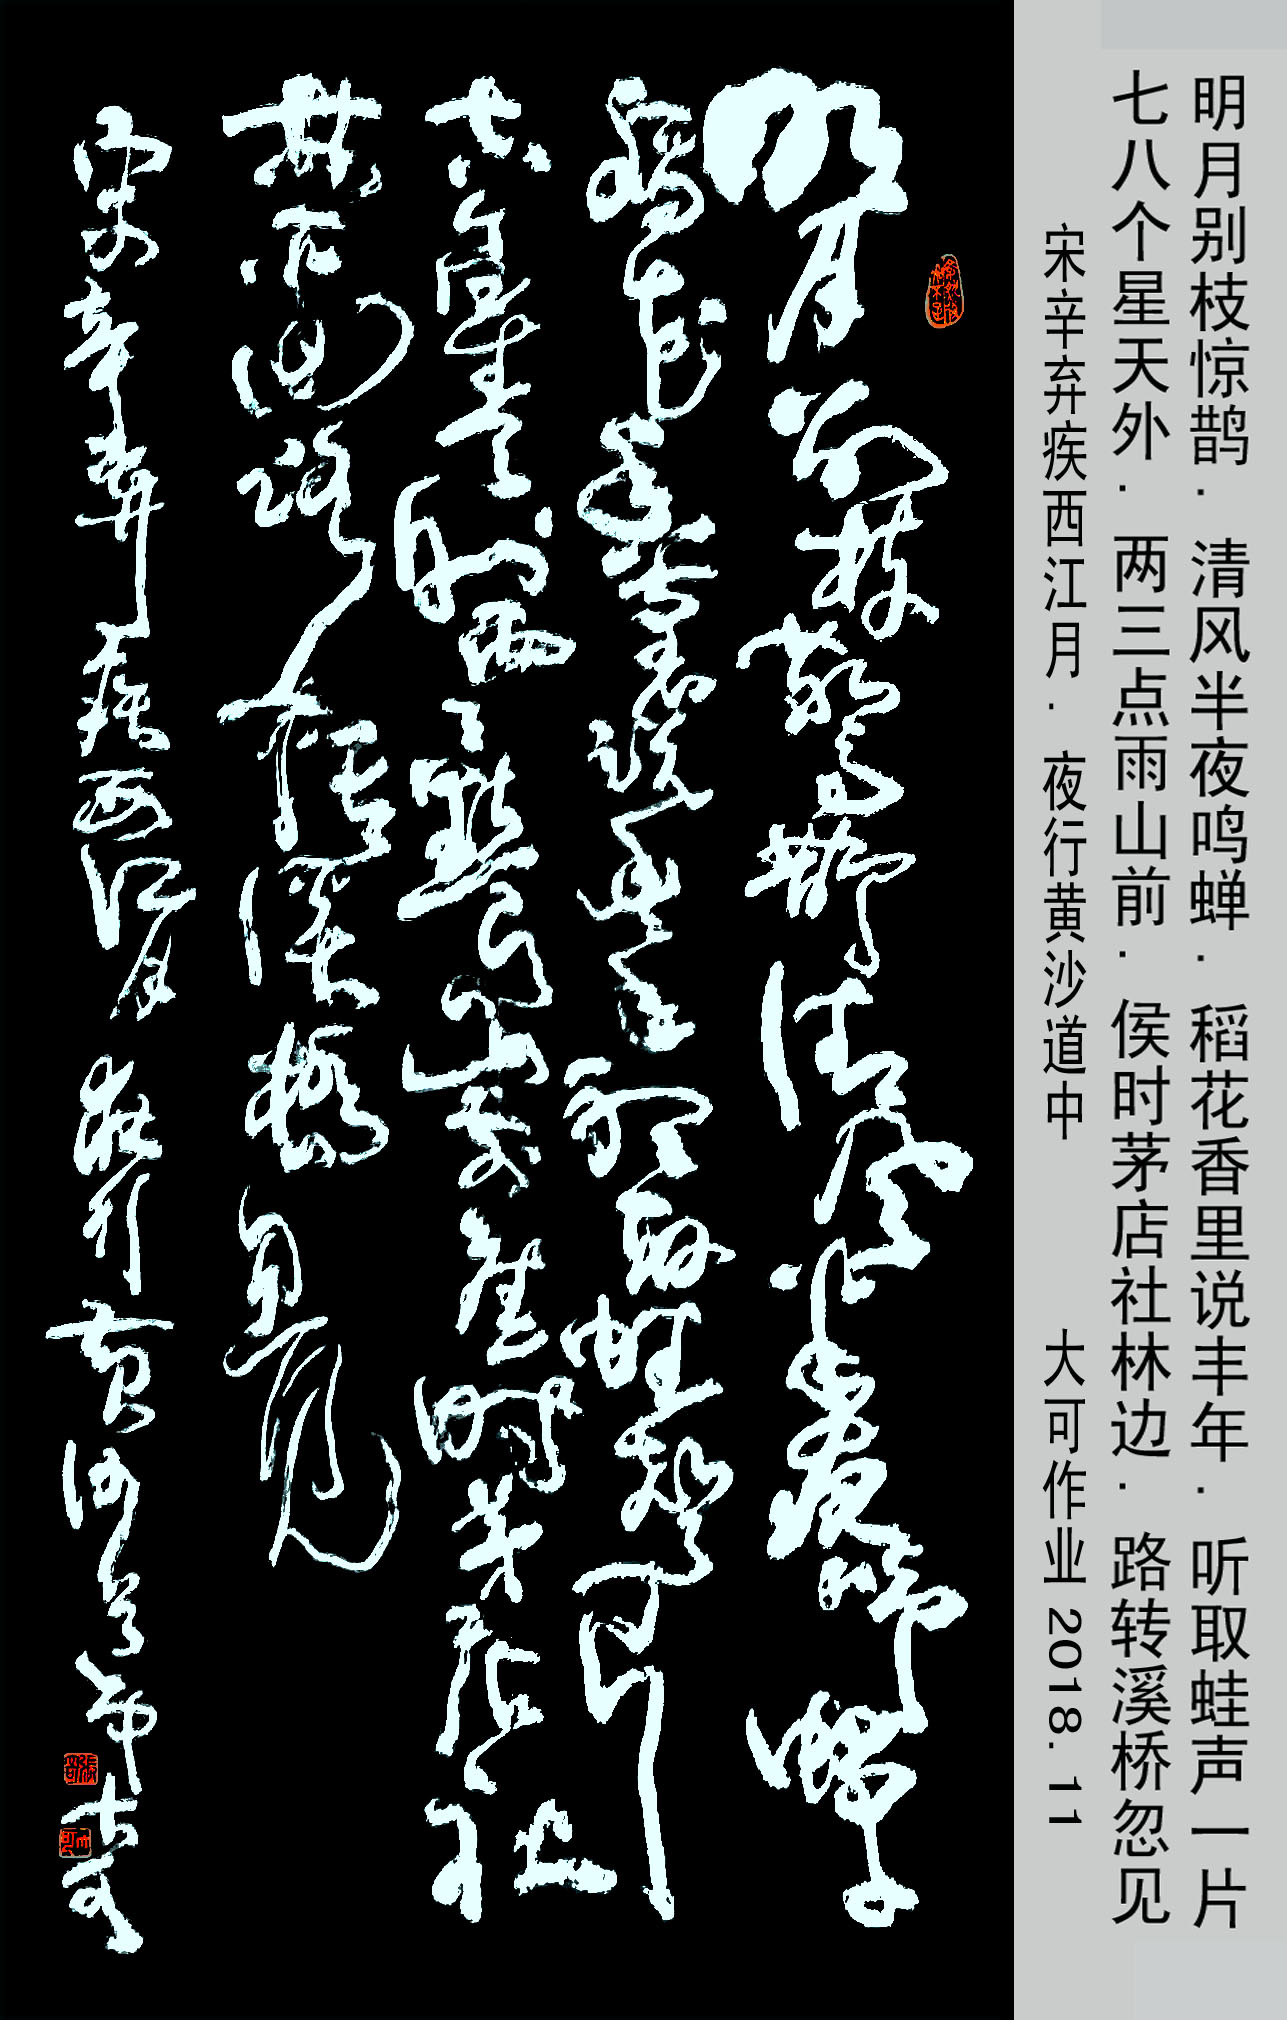 明月别枝惊鹊．清风半夜鸣蝉．稻花香里说丰年．听取蛙声一片
七八个星天外．两三点雨山前．侯时茅店社林边．路转溪桥忽见
宋辛弃疾西江月．夜行黄沙道中 大可作业 2018.11
明月别枝驚鵲清風半夜鳴蟬
稻花香裏說豐年聽取蛙聲一片
七八個星天外兩三點雨山前舊時茅店社
林邊路轉溪橋忽見
宋辛棄疾西江月夜行黄沙道中大可